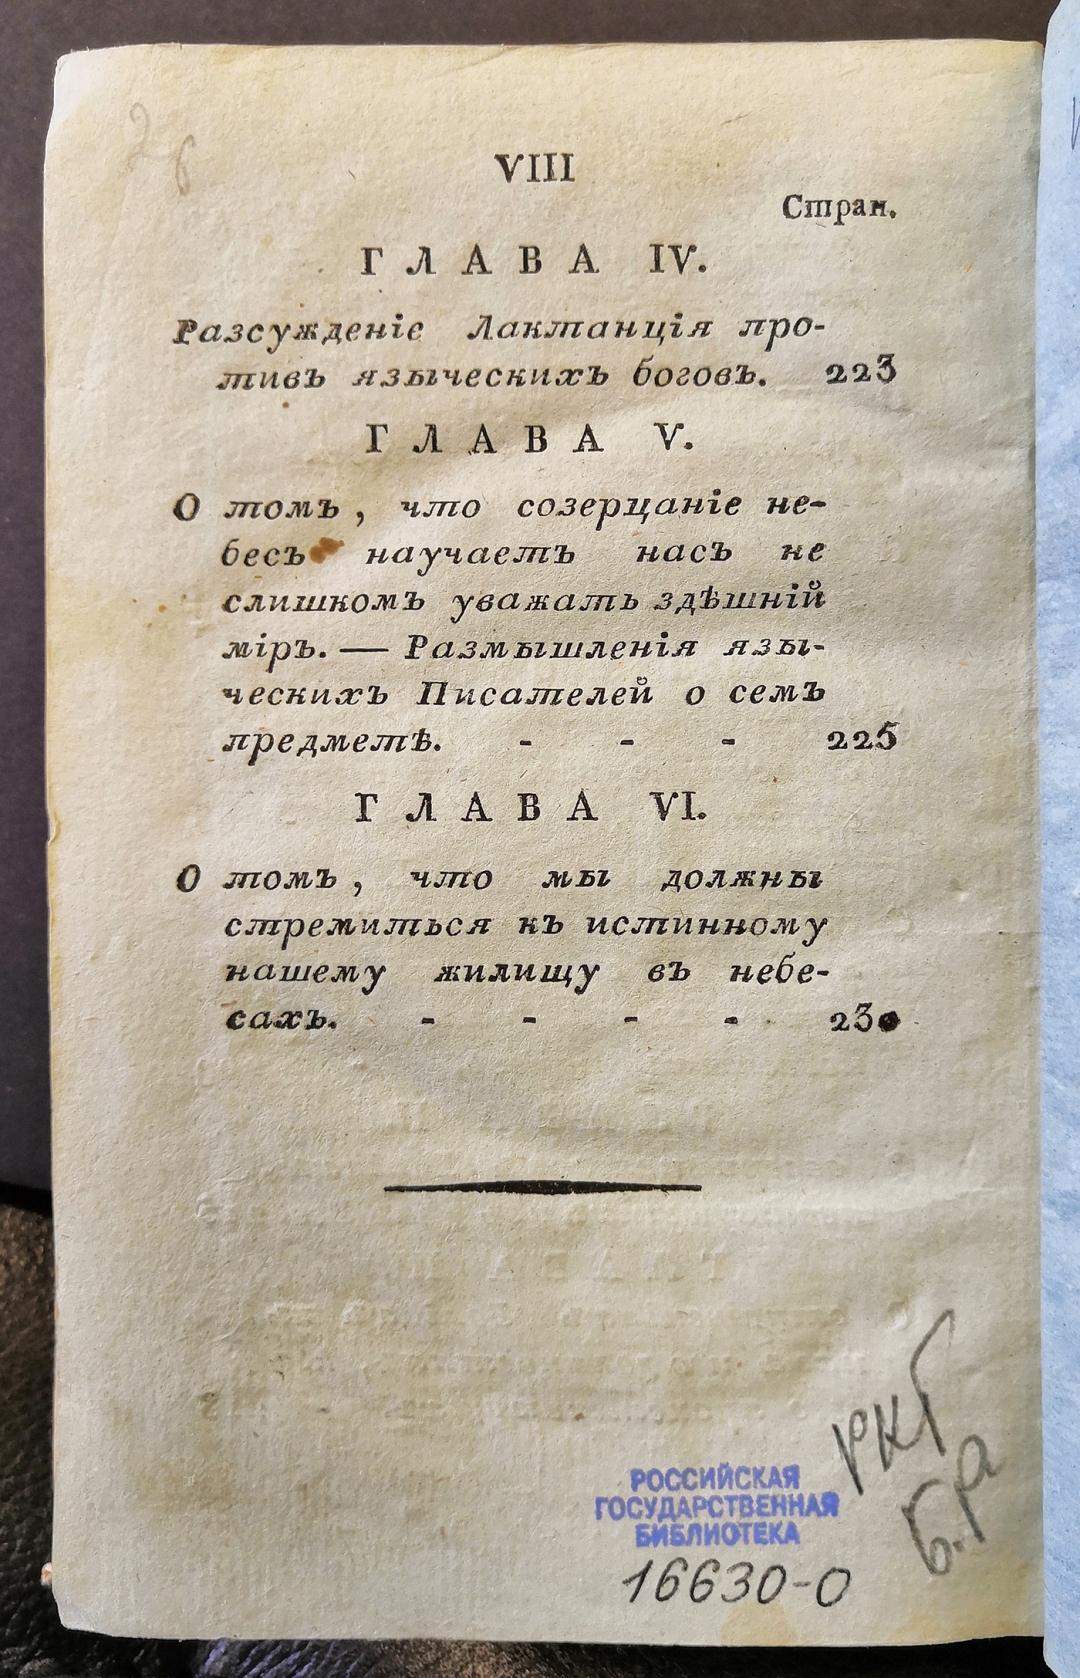 26
VIII
Стран.
ГЛАВА IV.
Разсужденіе Лактанція про-
тивъ языческихъ боговъ. 223
ГЛАВА V.
О томъ, что созерцаніе не-
бесъ научаетъ насъ не
слишкомъ уважать здѣшній
міръ. — Размышленія язы-
ческихъ Писателей о семъ
предметѣ. - - - 225
ГЛАВА VI.
О томъ, что мы должны
стремиться къ истинному
нашему жилищу въ небе-
сахъ. - - - - 230
РКГ
Б.Р
РОССИЙСКАЯ
ГОСУДАРСТВЕННАЯ
БИБЛИОТЕКА
16630-0